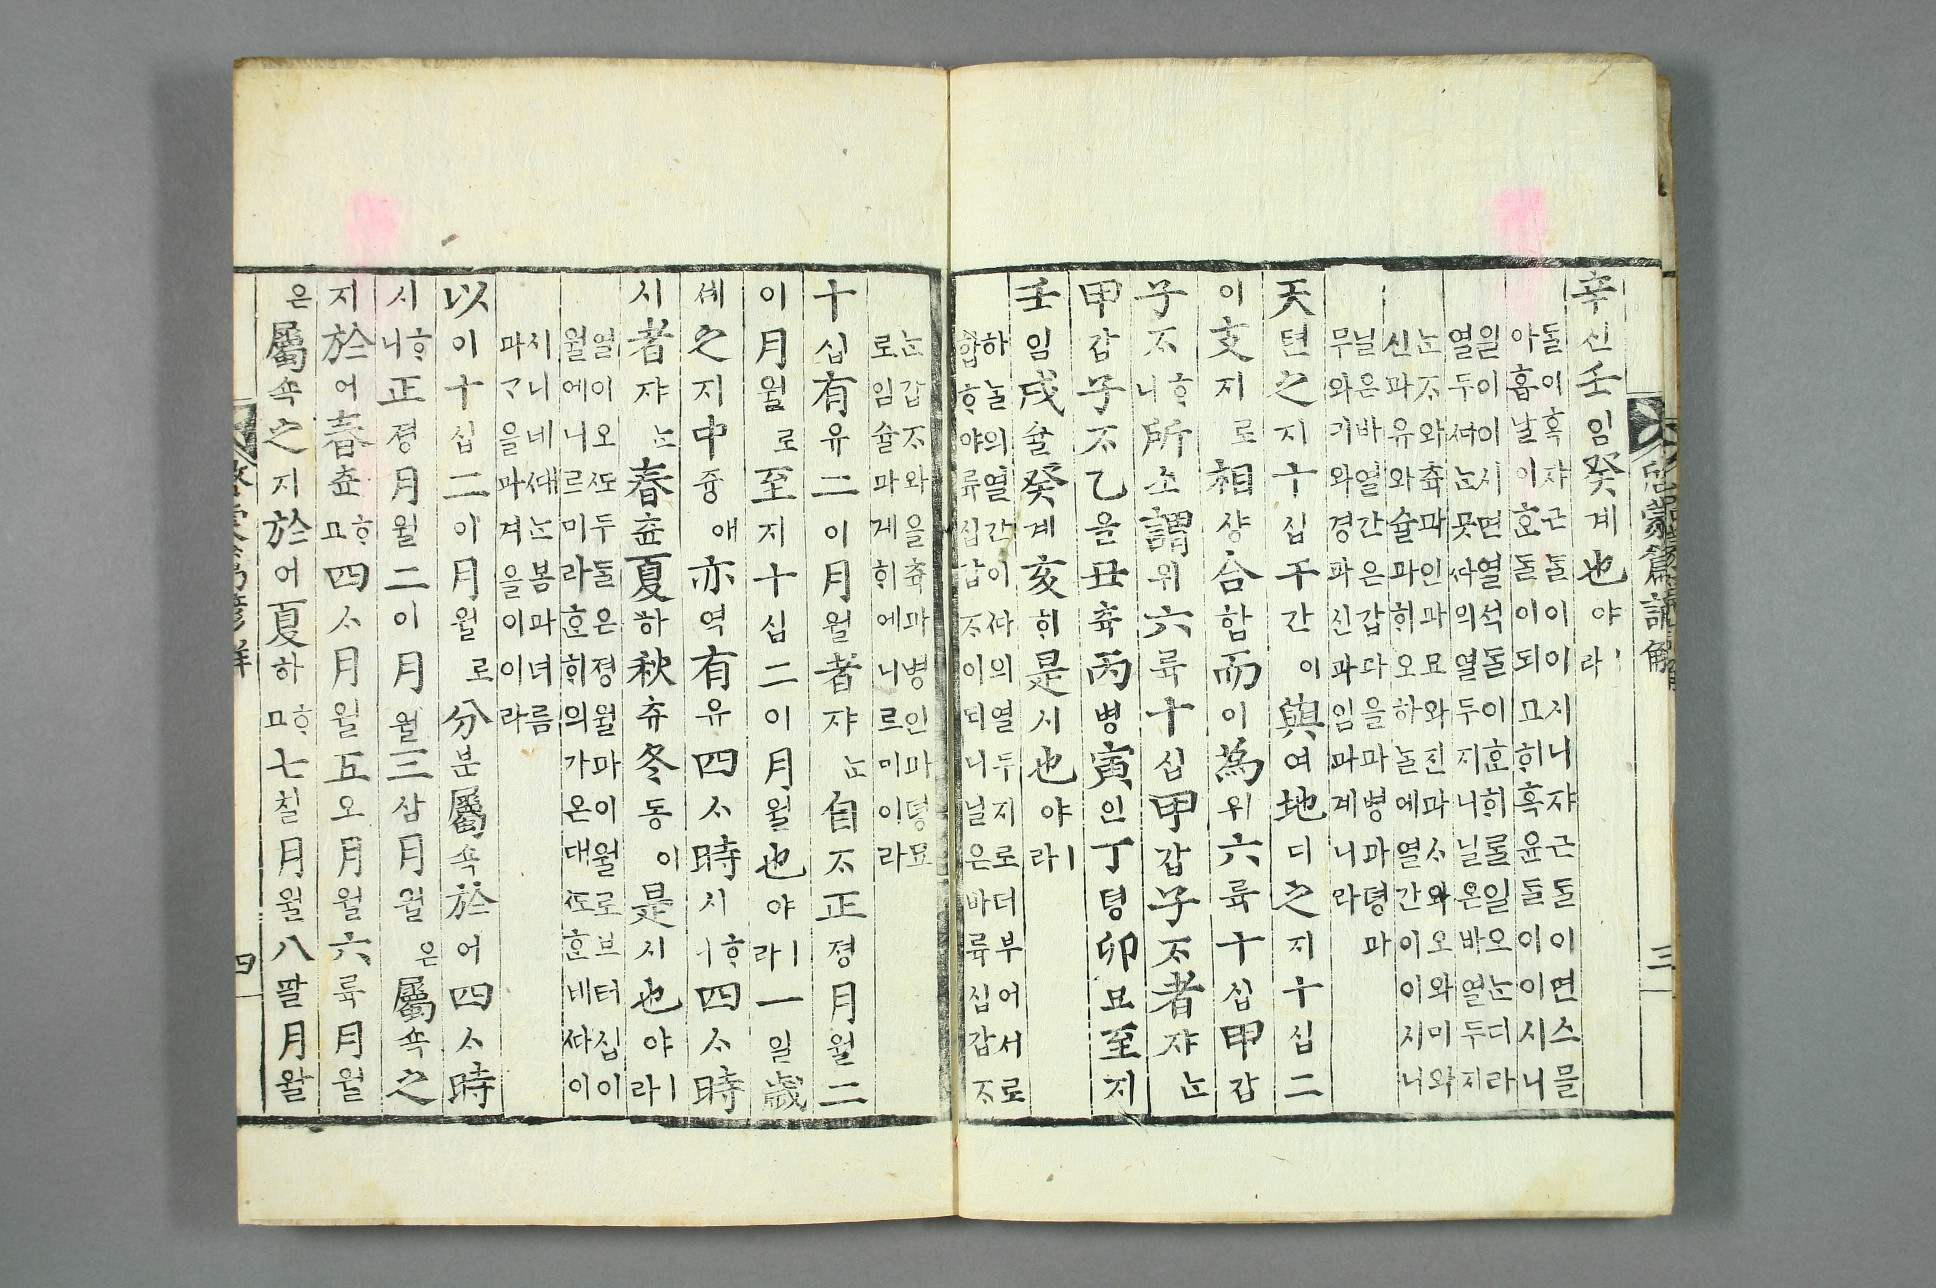 啓蒙篇諺解 三
辛신壬임癸계也야ㅣ라
돌이혹쟈근돌이이시니쟈근돌이면스믈
아홉날이ᄒᆞᆫ돌이되고ᄒᆡ혹윤돌이이시니
일이이시면열석돌이ᄒᆞᆫᄒᆡ롤일오ᄂᆞᆫ디라
열두셔ᄂᆞᆫ못ᄯᅡ의열두지니닐온바열두지
ᄂᆞᆫᄌᆞ와츅과인과묘와진과ᄉᆞ와오와미와
신과유와슐과ᄒᆡ오하놀에열간이이시니
닐은바열간은갑과을과병과뎡과
무와기와경과신과임과계니라
天텬之지十십干간이與여地디之지十십二
이支지로相샹合합而이爲위六륙十십甲갑
子ᄌᆞᄒᆞ니所소謂위六륙十십甲갑子ᄌᆞ者쟈ᄂᆞᆫ
甲갑子ᄌᆞ乙을丑츅丙병寅인丁뎡卯묘至지
壬임戌슐癸계亥ᄒᆡ是시也야ㅣ라
하놀의열간이ᄯᅡ의열두지로더부어서로
합ᄒᆞ야륙십갑ᄌᆞ이되니닐은바륙십갑ᄌᆞ
ᄂᆞᆫ갑ᄌᆞ와을츅과병인과뎡묘
로임슐과계ᄒᆡ에니르미이라
十십有유二이月월者쟈ᄂᆞᆫ自ᄌᆞ正졍月월二
이月월로至지十십二이月월也야ㅣ라一일歲
셰之지中즁애亦역有유四ᄉᆞ時시ᄒᆞ니四ᄉᆞ時
시者쟈ᄂᆞᆫ春츈夏하秋츄冬동이是시也야ㅣ라
열이오ᄯᅩ두돌은졍월과이월로브터십이
월에니르미라ᄒᆞᆫᄒᆡ의가온대ᄯᅩᄒᆞᆫ네ᄯᅡ이
시니네ᄯᅢᄂᆞᆫ봄과녀름
과ᄀᆞ을과겨을이이라
以이十십二이月월로分분屬쇽於어四ᄉᆞ時
시ᄒᆞ니正졍月월二이月월三삼月월은屬쇽之
지於어春츈ᄒᆞ고四ᄉᆞ月월五오月월六륙月월
은屬쇽之지於어夏하ᄒᆞ고七칠月월八팔月왈
啓蒙篇諺解 四